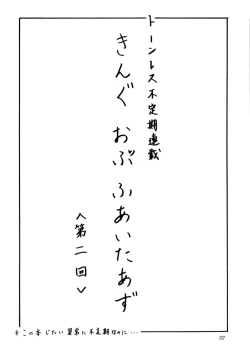 トーンレス不定期連載
きんぐ おぶ ふあいたあず
<第二回>
※この本じたい異常に不定期なのに・・・
32